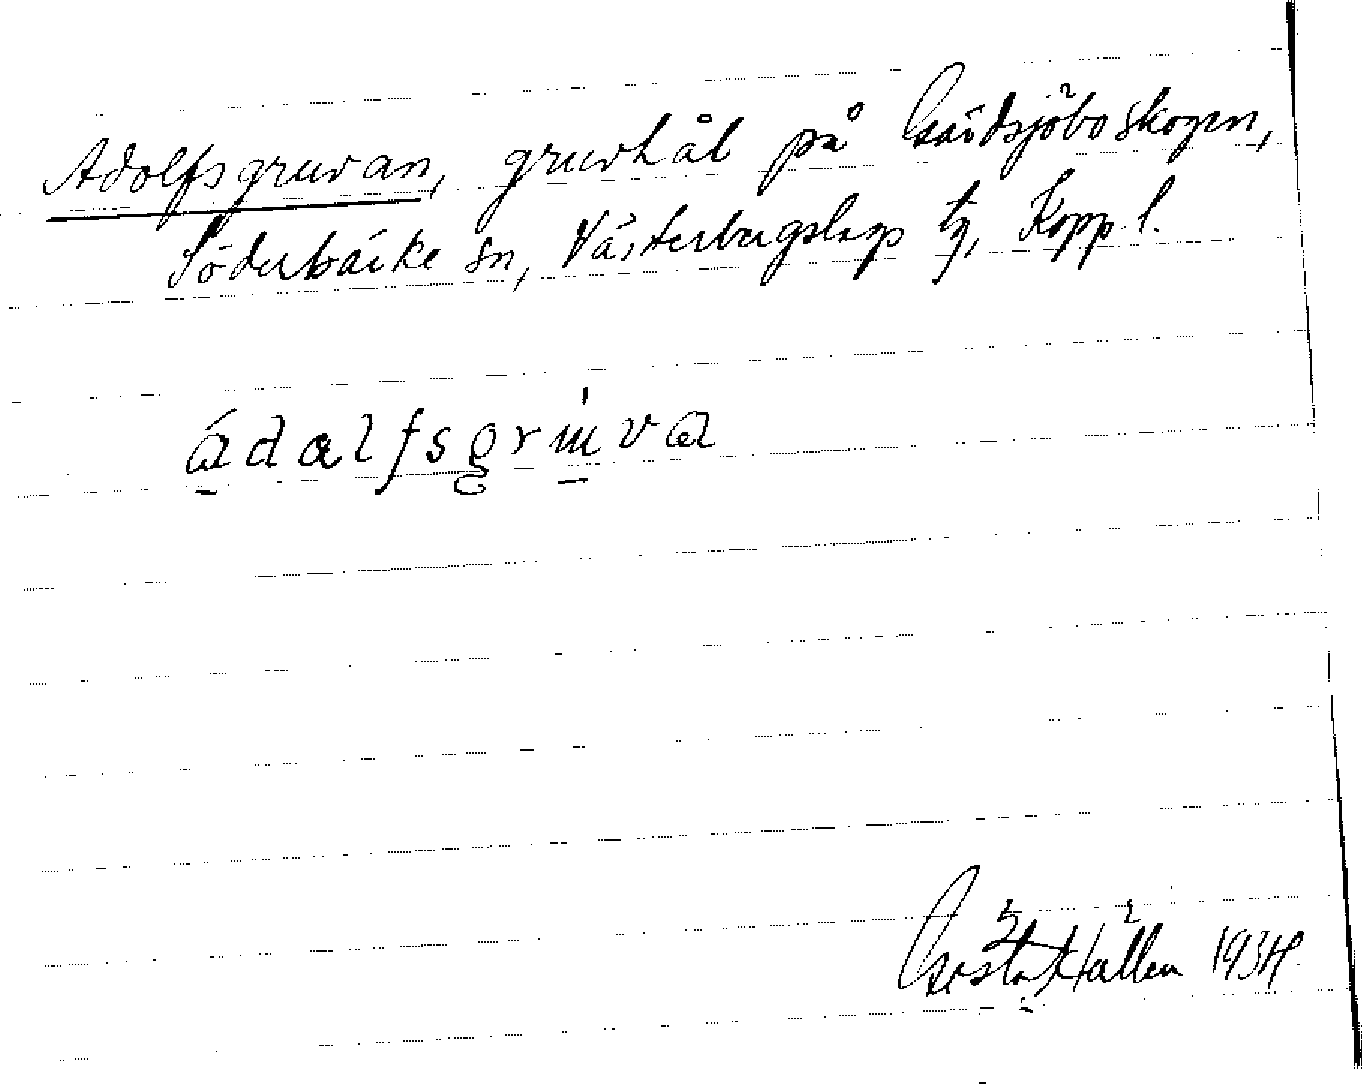 Adolfsgruvan, gruvhål på Gäddsjöboskogen,
Söderbärke sn, Västerbergslags tg, Kopp. l.
ádalfsgrɯ́va
Gösta Hallén 1934